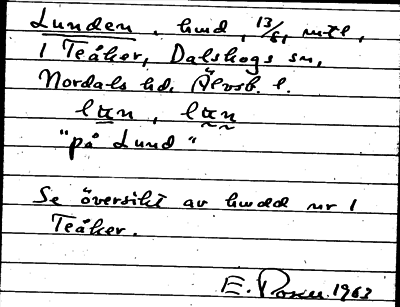 Lunden, hmd, 13/61 mtl,
1 Teåker, Dalskogs sn,
Nordals hd, Älvsb. l.
"på Lund"
Se översikt av hmdd nr 1
Teåker.
E. 1963